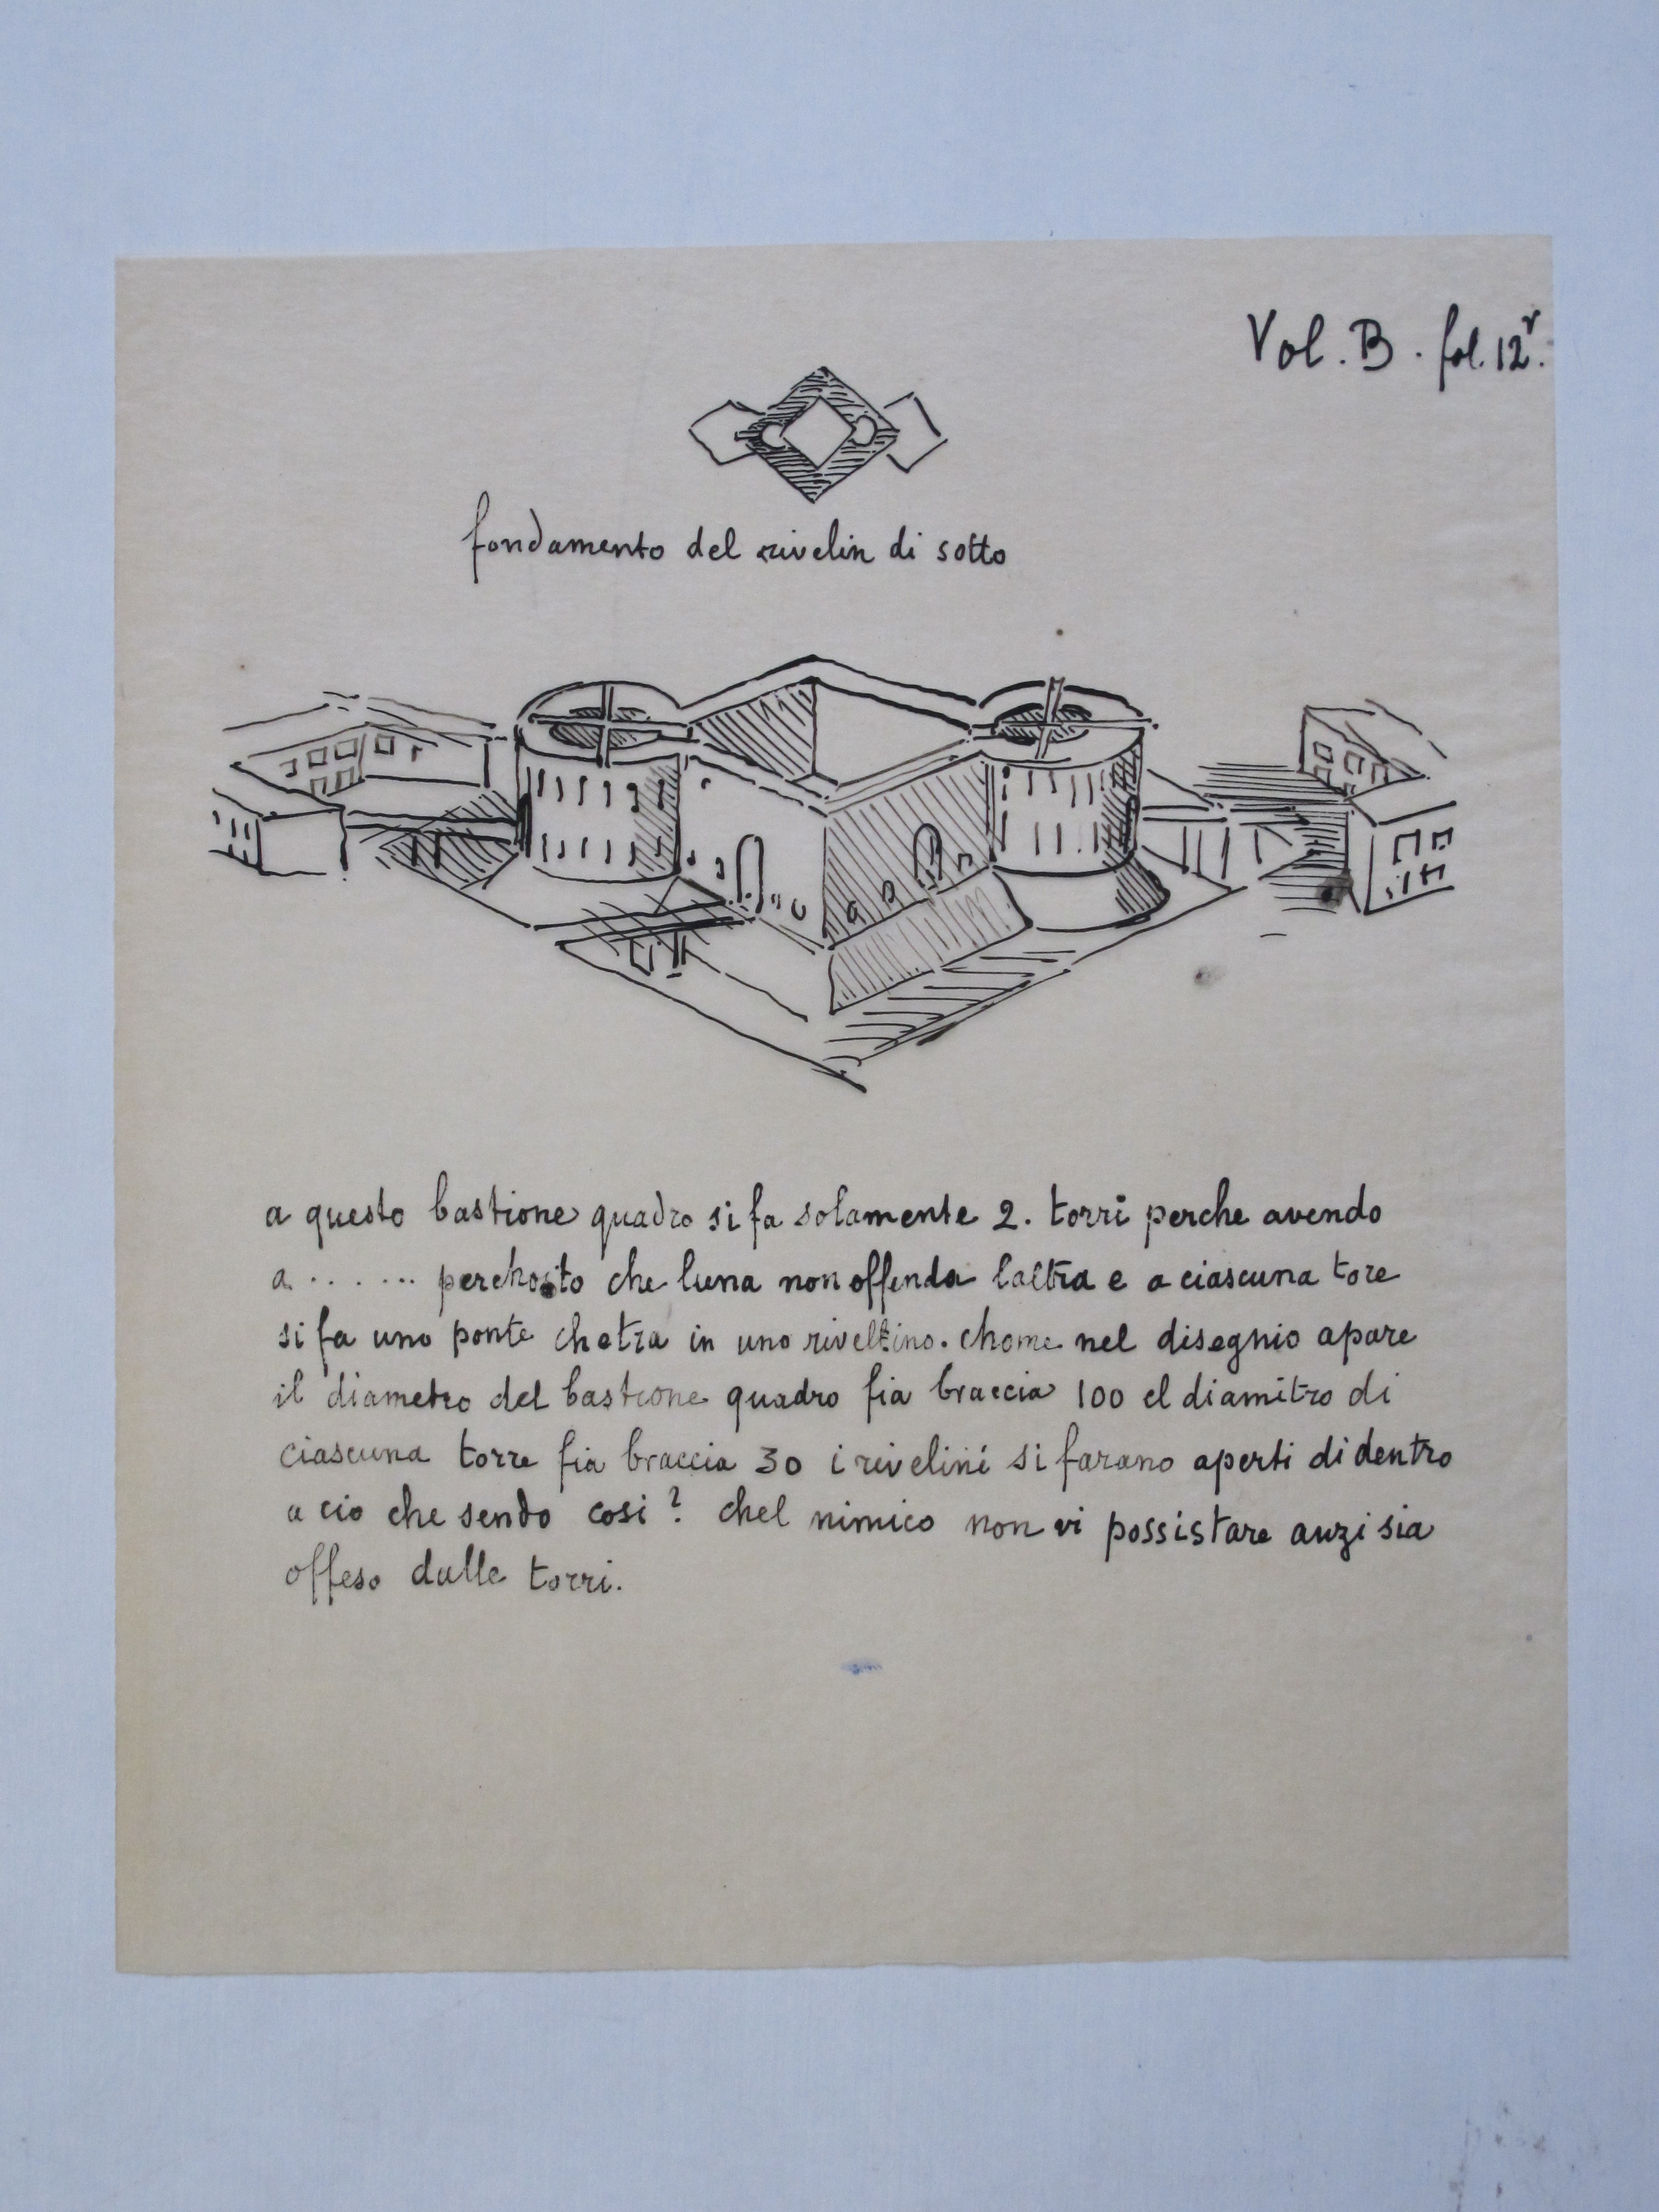 Vol. B. fol. 12r.
fondamento del rivelin di sotto
a questo bastione quadro si fa solamente 2. torri perche avendo
a . . . . . . perchosto che luna non offenda laltra e a ciascuna tore
si fa uno ponte chetra in uno riveltino. chome nel disegnio apare
il diametro del bastione quadro fia braccia 100 el diamitro di
ciascuna torre fia braccia 30 i rivelini si farano aperti di dentro
a cio che sendo cosi? chel nimico non vi possi stare anzi sia
offeso dalle torri.